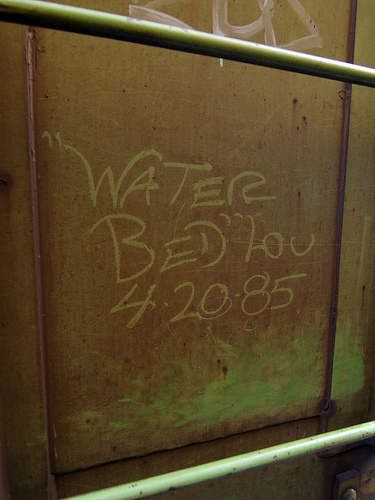 "WATER
BED" LOU
4.20.85